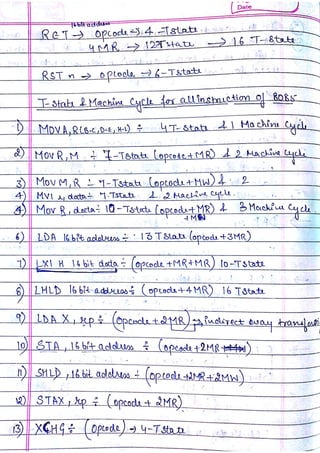 Date
16bit address
RET → opcode → 4 - Tstate
4MR → 12Tstate → 16 T-State
RST n → opcode → 6-Tstate
T-state & Machine Cycle for all instruction of 8085
1) MOV A, R(B-C, D-E, H-L) ÷ 4T-state & 1 Machine Cycle
2) MOV R, M ÷ 7-Tstate (opcode+MR) & 2 Machine Cycle
3) MOV M, R ÷ 7-Tstate (opcode+MW) & 2
4) MVI r, data ÷ 7-Tstate & 2 Machine Cycle.
5) Mov R, data ÷ 10-Tstate (opcode+MR) & 3 Machine Cycle
+MW
6) LDA 16bit address ÷ 13 TState (opcode +3MR)
7) LXI H 16 bit data ÷ (opcode+MR+MR) 10-TState
8) LHLD 16 bit address ÷ (opcode+4MR) 16 TState
9) LDA X, rp ÷ (opcode + 2MR) → indirect away transfer
10) STA, 16 bit address ÷ (opcode+2MR+MW)
11) SHLD, 16 bit address ÷ (opcode+2MR+2MW)
12) STAX, rp ÷ (opcode + 2MR)
13) XCHG ÷ (opcode) → 4-TState